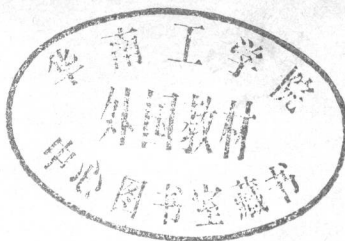 华南工学院
外国教材
中心图书室藏书